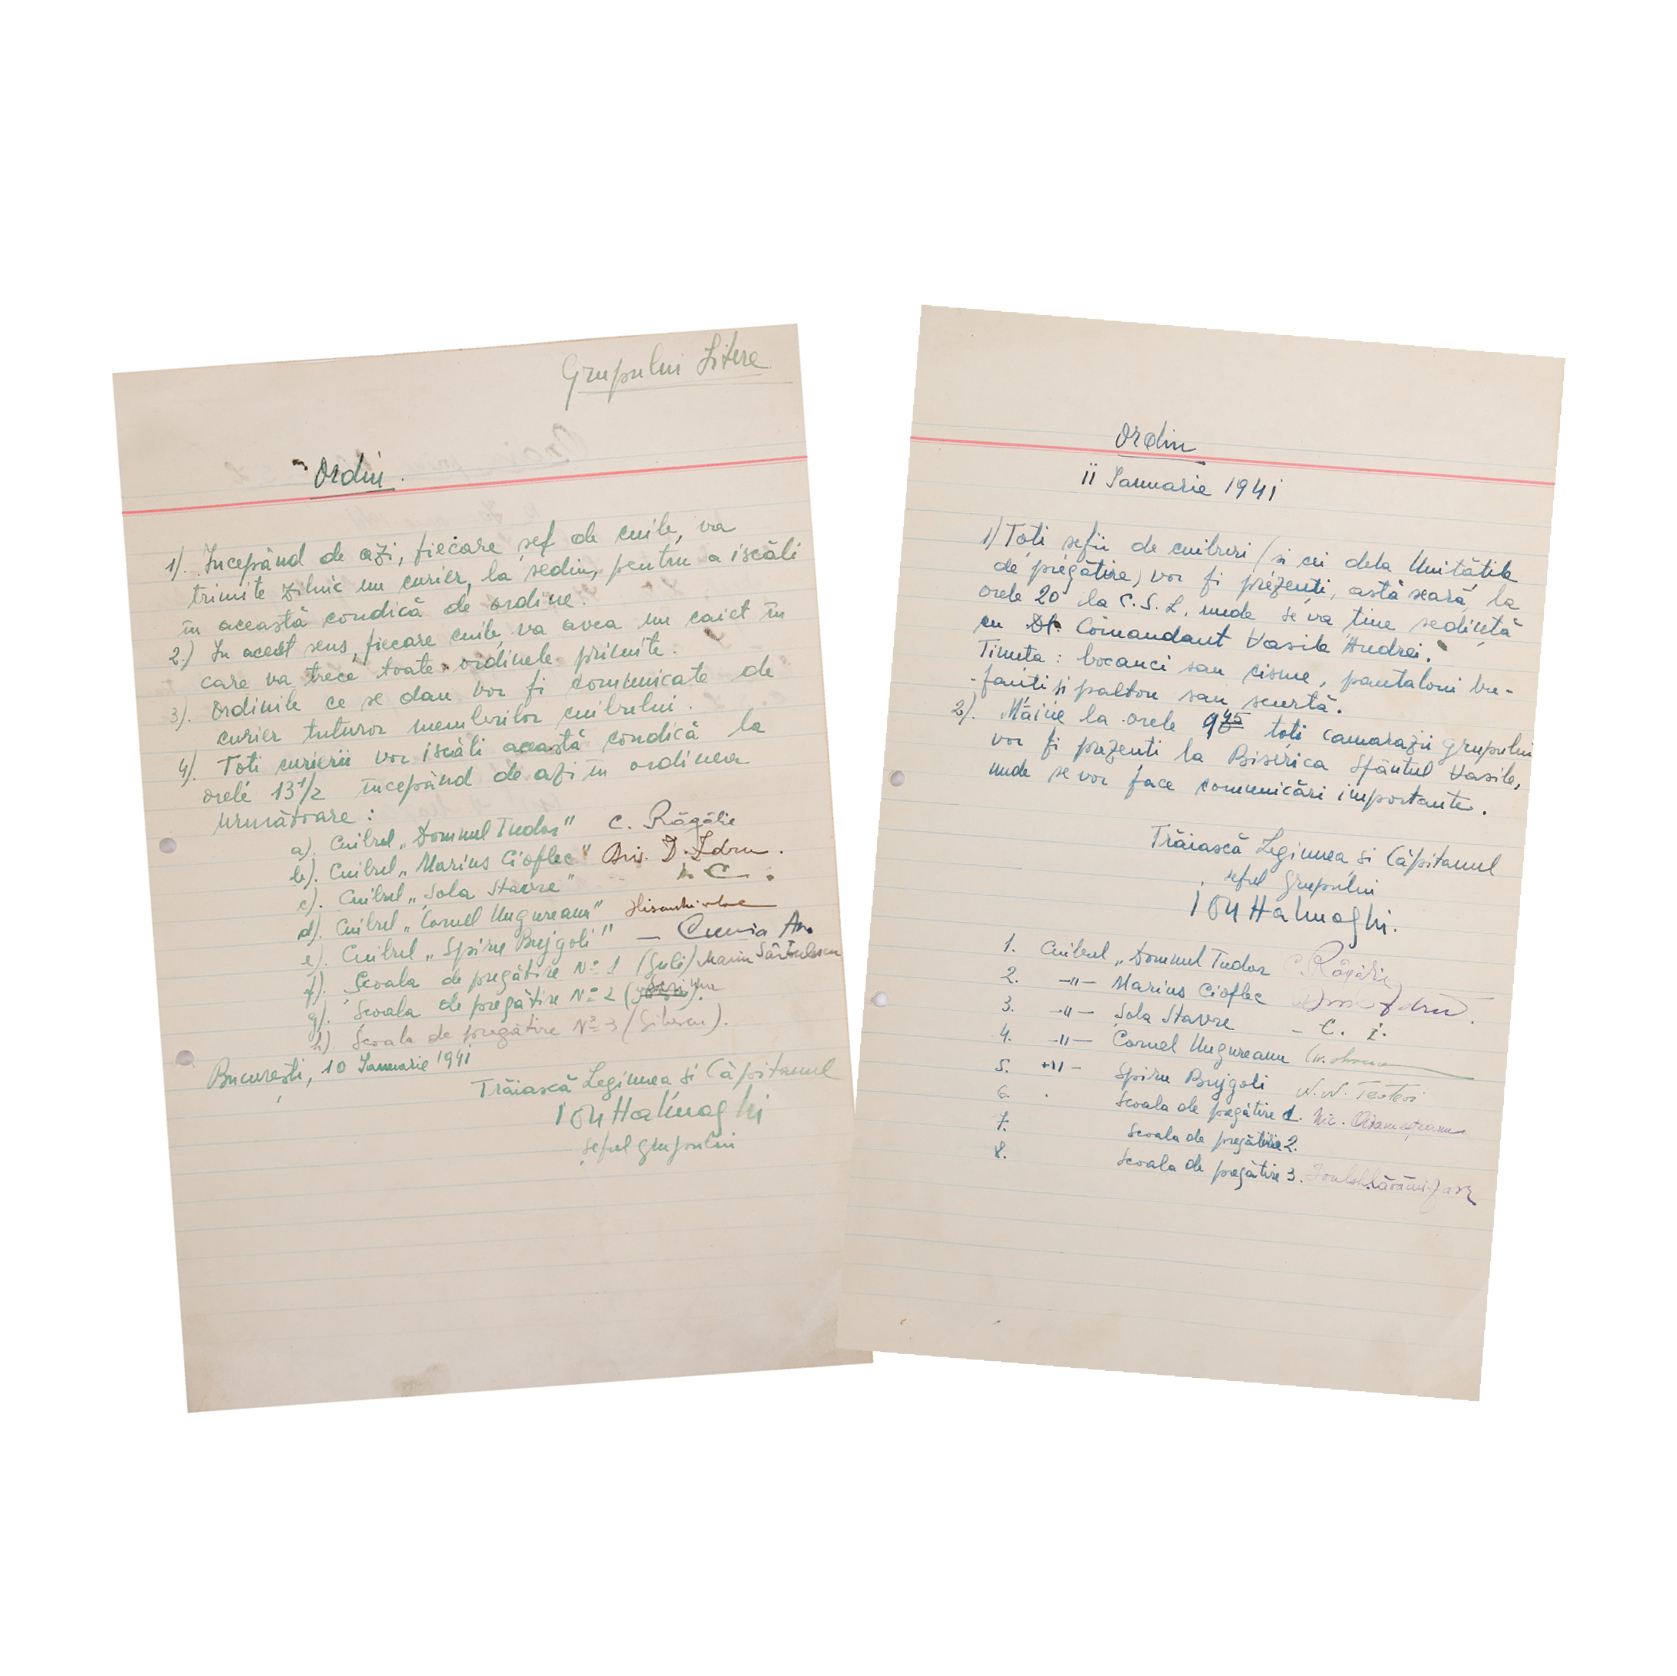 Grupului Litere
Ordin.
1). Incepând de azi, fiecare șef de cuib, va
trimite zilnic un curier, la sediu, pentru a iscăli
în această condică de ordine.
2.) In acest sens, fiecare cuib, va avea un caiet în
care va trece toate ordinele primite.
3). Ordinile ce se dau vor fi comunicate de
curier tuturor membrilor cuibului.
4). Toti curierii vor iscăli această condică la
orele 13 1/2 începând de azi în ordinea
următoare :
a). Cuibul „Domnul Tudor" C. Răgălie
b). Cuibul „Marius Cioflec" D.
c). Cuibul „Sola Stavre" C.
d). Cuibul „Cornel Ungureanu"
e). Cuibul „Spiru Bujgoli" –
f). Școala de pregătire Nº 1 Marin
g). Școala de pregătire Nº 2
h). Școala de pregătire Nº 3
București, 10 Ianuarie 1941
Trăiască Legiunea și Căpitanul
Ion Halmaghi
șeful grupului
Ordin
11 Ianuarie 1941
1) Toti șefii de cuiburi (și cei dela Unitățile
de pregătire) vor fi prezenți, astă seară, la
orele 20 la C.S.L. unde se va ține ședință
cu Dl. Comandant Vasile Andrei.
Tinuta : bocanci sau cisme, pantaloni bu-
-fanti și palton sau scurtă.
2). Mâine la orele 9 45 toti camarazii grupului
vor fi prezenti la Biserica Sfântul Vasile,
unde se vor face comunicări importante.
Trăiască Legiunea și Căpitanul
șeful Grupului
Ion Halmaghi.
1. Cuibul „Domnul Tudor C. Răgălie
2. -"- Marius Cioflec
3. -"- Șola Stavre – C. I.
4. -"- Cornel Ungureanu
5. -"- Spiru Bujgoli N. N.
6. Școala de pregătire 1. Nic.
7. Școala de pregătire 2.
8. Școala de pregătire 3.